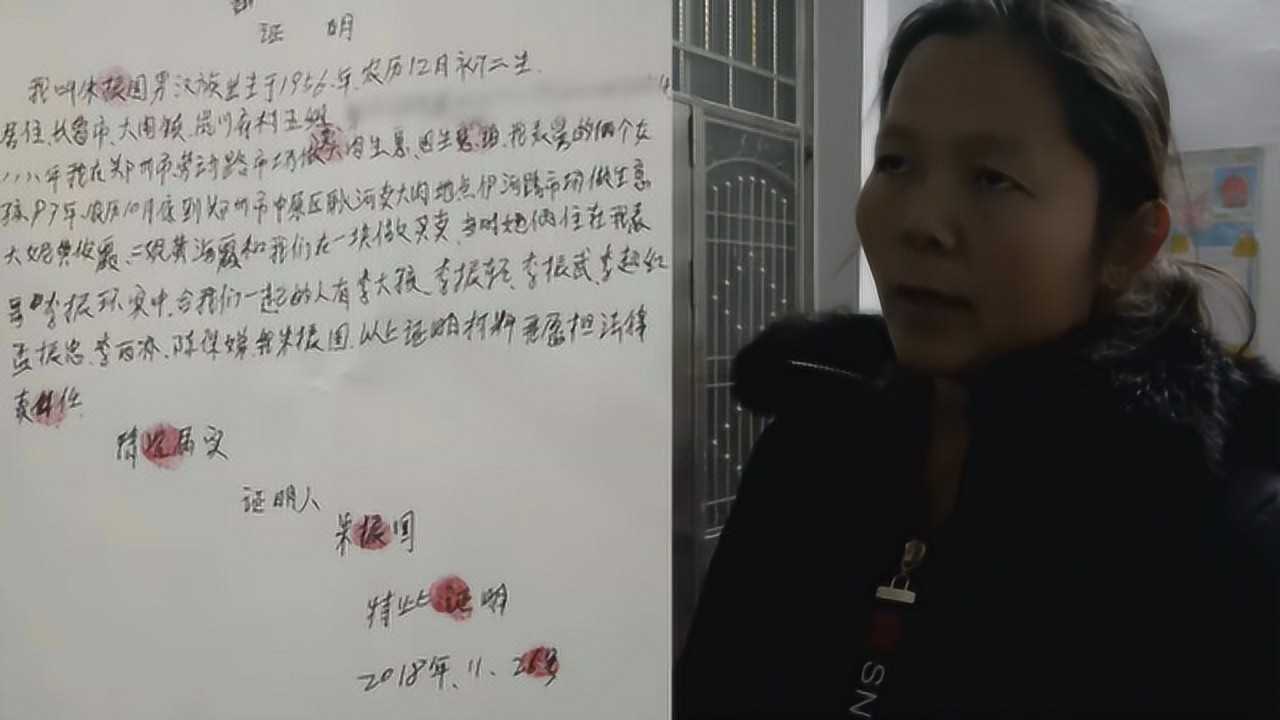 证 明
我叫朱振国男汉族出生于1956.年.农历12月初二生.
居住.长葛市.大周镇.
年我在郑州市劳动路市场做卖肉生意.因生意.
孩97年.农历10月底到郑州市中原区耿河卖大肉地点伊河路市场做生意
大妮黄俊霞.二妮黄海霞和我们在一块做买卖.当时她俩住在我表
李振环家中.合我们一起的人有李大狼.李振轻.李振武.李超红
孟振忠.李百冰.陈保娣我朱振国.以上证明材料无愿担法律
责任.
情况属实
证明人
朱振国
特此证明
2018年.11.26号
SN